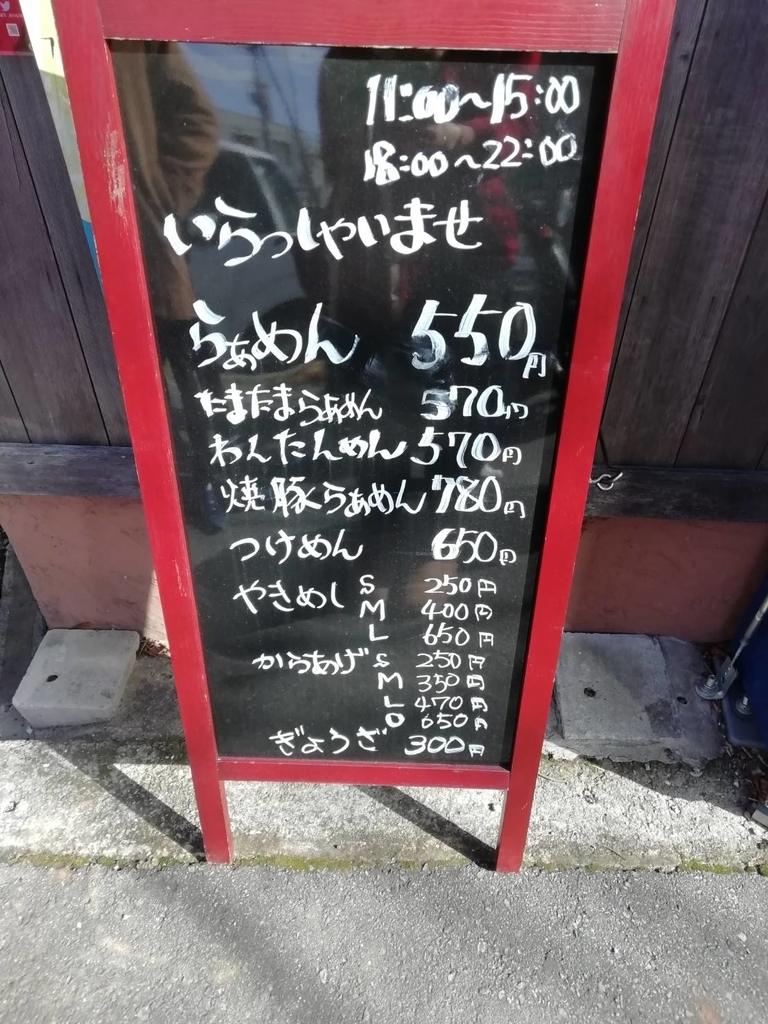 11:00~15:00
18:00~22:00
いらっしゃいませ
らぁめん 550円
たまたまらぁめん 570円
わんたんめん 570円
焼豚らぁめん 780円
つけめん 650円
やきめし S 250円
M 400円
L 650円
からあげ S 250円
M 350円
L 470円
O 650円
ぎょうざ 300円